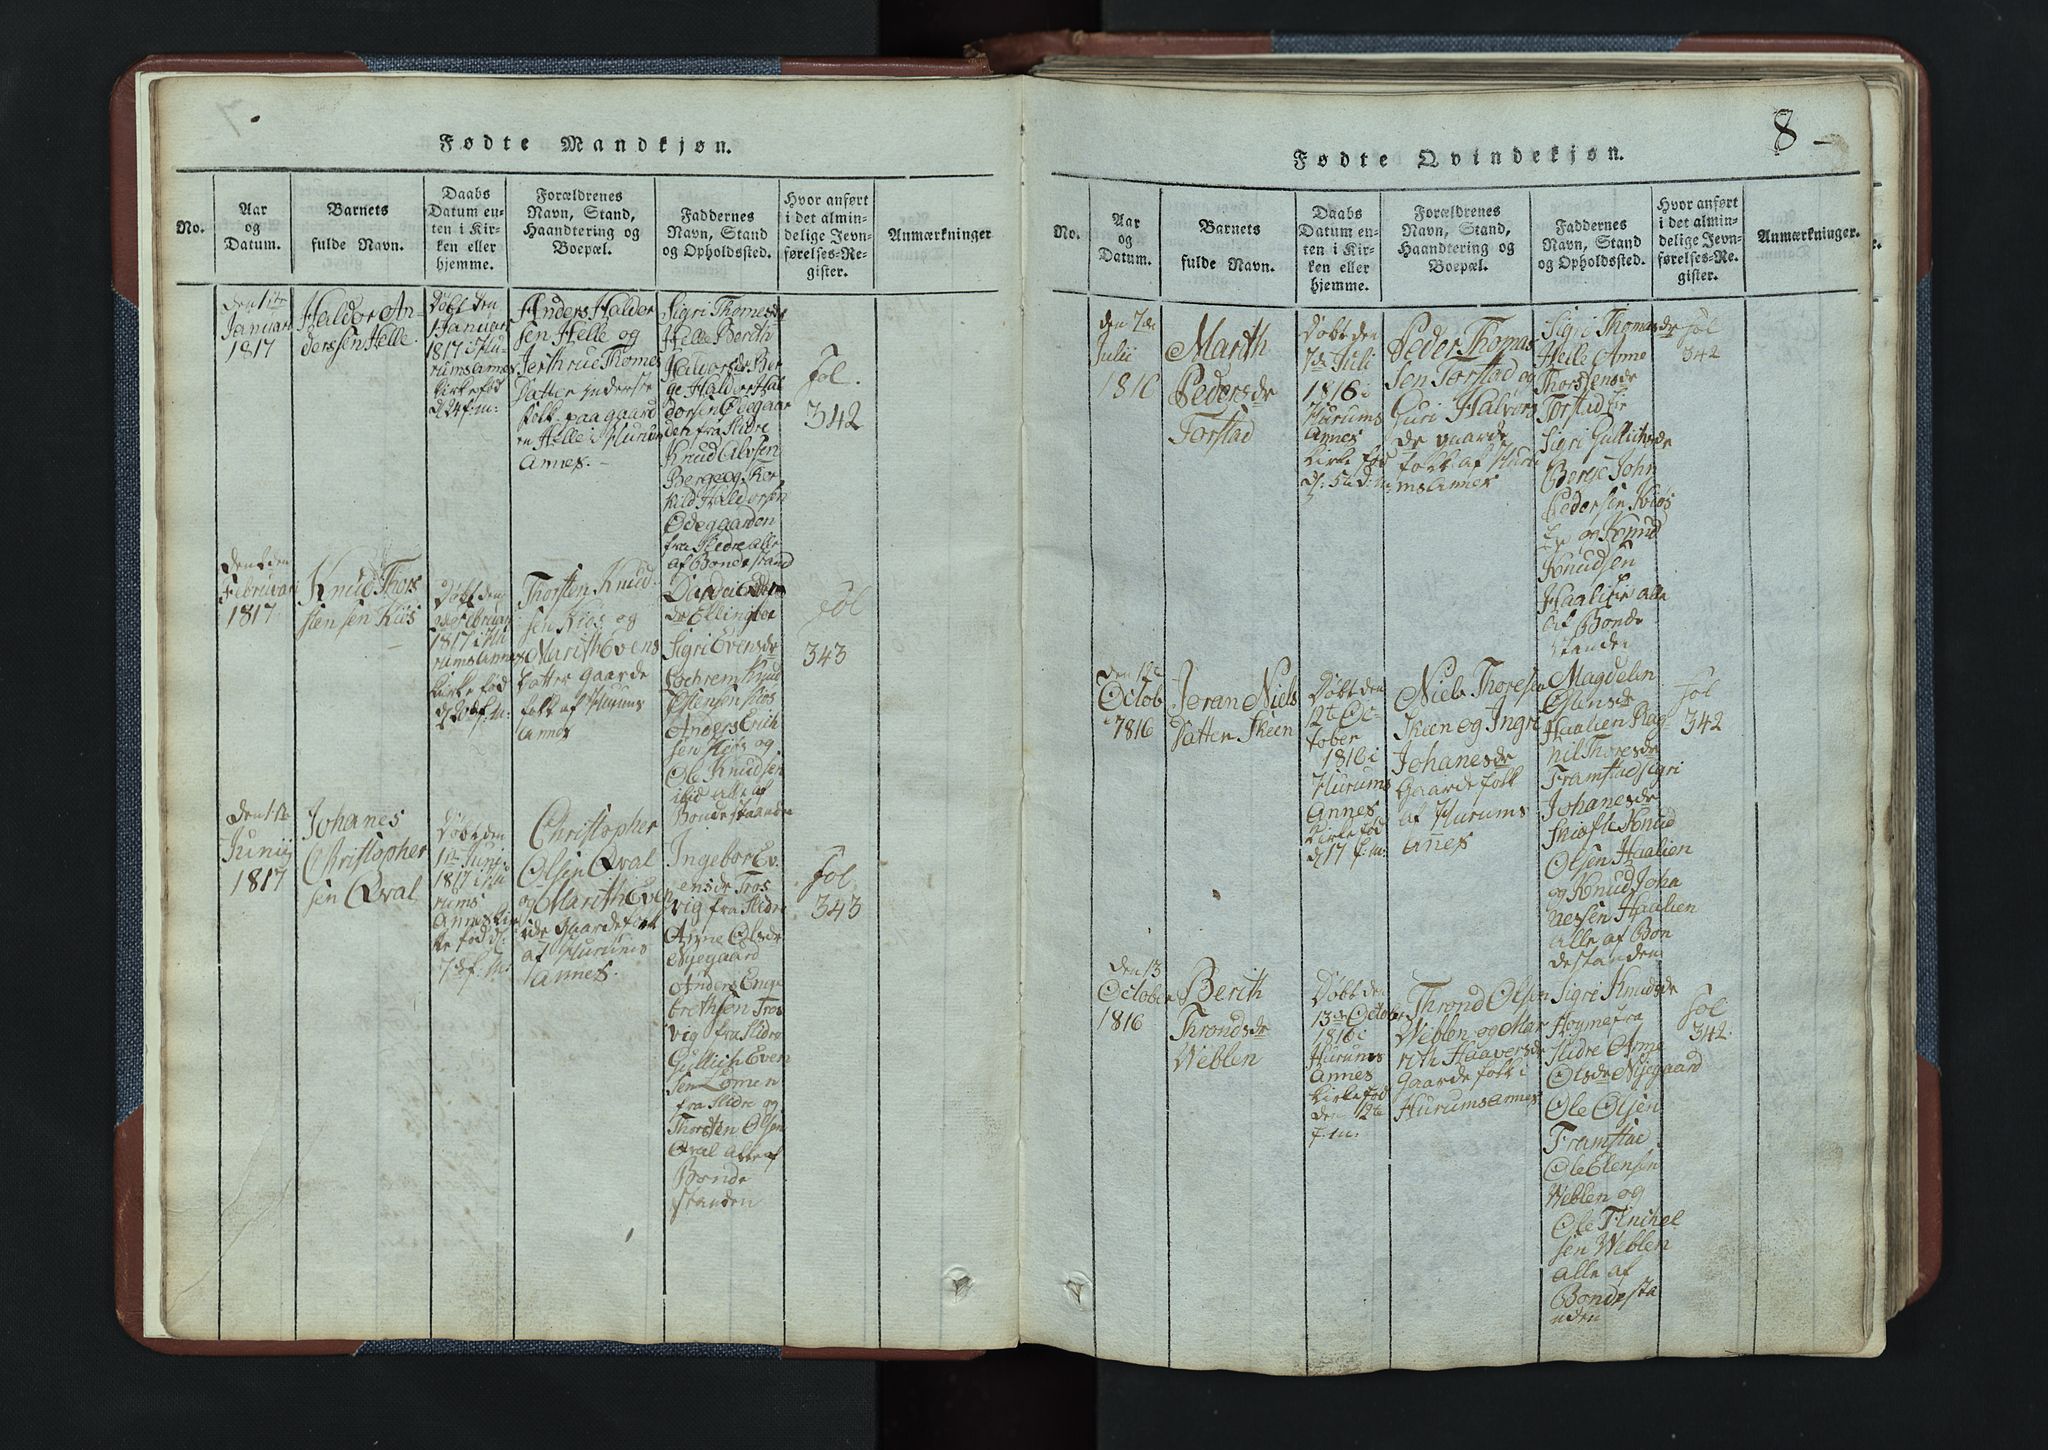 Fødte Mandkjøn.
No.
Aar
og
Datum.
Barnets
fulde Navn.
Daabs
Datum en-
ten i Kir-
ken eller
hjemme.
Forældrenes
Navn, Stand,
Haandtering og
Boepæl.
Faddernes
Navn, Stand
og Opholdssted.
Hvor anført
i det almin-
delige Jevn-
førelses-Re-
gister.
Anmærkninger
den 1ste
Januar
1817
Haldor An-
derssen Helle
Døbt den
1 Januar
1817 i Hu-
rums Annex
Kirke fød
d 24 f: m:
Anders Haldor
sen Helle og
Jerthrue Thomes
Datter
folk paa gaard
en Helle i Hurum
Annex.
Sigri Thomesdr
Helle Berith
Halvorsdr Ber
ge Haldor Hal
dorsen Ødegaar
den fra Slidre
Knud Alvsen
Berge og
kild Haldorsen
Ødegaarden
fra Slidre alle
af Bondestand
Fol.
342
Februari
1817
Knud Thors
stensen Kiös
Døbt den
1817 i Hu
rums Annex
Kirke fød
Thorsten Knud
sen Kiös og
Marith Evens
Datter Gaarde
folk af Hurums
Annex
dr Ellingbøe
Sigri Evensdr
Lochrem Knud
Østensen Kiös
Anders Erich
sen Kiös og
Ole Knudsen
ibid alle af
Bondestanden
Fol
343
den 1ste
Junij
1817
Johanes
Christopher
sen Qval
Døbt den
1te Juni
1817 i Hu
rums
Annex Kir
ke fød d:
7de f: m:
Christopher
Olsen Qval
og Marith Even
sdr Gaardefolk
af Hurums
Annex.
Ingebor Ev
ensdr Tros
vig fra Slidre
Anne Olsdr
Nyegaard
Anders Enge
brethsen Tros
vig fra Slidre
Gullich Even
sen Lomen
fra Slidre og
Thorsten Olsen
Qval alle af
Bonde
standen
Fol
343
8
Fødte Qvindekjøn.
No.
Aar
og
Datum.
Barnets
fulde Navn.
Daabs
Datum en-
ten i Kir-
ken eller
hjemme.
Forældrenes
Navn, Stand,
Haandtering og
Boepæl.
Faddernes
Navn, Stand
og Opholdssted.
Hvor anført
i det almin-
delige Jevn-
førelses-Re-
gister.
Anmærkninger.
den 7de
Julii
1816
Marith
Pedersdr
Torstad
Døbt den
7de Juli
1816 i
Hurums
Annex
Kirke fød
Peder Thomas
sen Torstad og
Guri Halvors
dr gaarde
folk af Huru
ms Annex
Sigri Thomasdr
Helle Anne
Thorstensdr
Torstad
Sigri Gullichsdr
Berge John
Pedersen Kiös
og Knud
Knudsen
alle
af Bonde
standen
Fol
342
den 12te
Octob
1816
Jeran Niels
Datter Skeen
Døbt den
12te Oc-
tober
1816 i
Hurums
Annex
Kirke fød
d 17 f: m:
Niels Thoresen
Skeen og Ingri
Johanesdr
Gaardefolk
af Hurums
Annex
Magdelin
Olensdr
Haalien Rag
nil Thoresdr
Framstad Sigri
Johanesdr
Knud
Olsen Haalien
og Knud Joha
nessen Haalien
alle af Bon
destanden
Fol
342
den 13
October
1816
Berith
Throndsdr
Weblen
Døbt den
13de Octobr
1816 i
Hurums
Annex
Kirke fød
den 12te
f: m:
Thrond Olsen
Weblen og Mar
rith Haaversdr
Gaardefolk i
Hurums Annex
Sigri Knudsdr
Hogme fra
Slidre Anne
Olsdr Nijegaard
Ole Olsen
Framstad
Ole Elensen
Weblen og
Ole Tinchel
sen Weblen
alle af
Bondesta
nden
Fol
342.